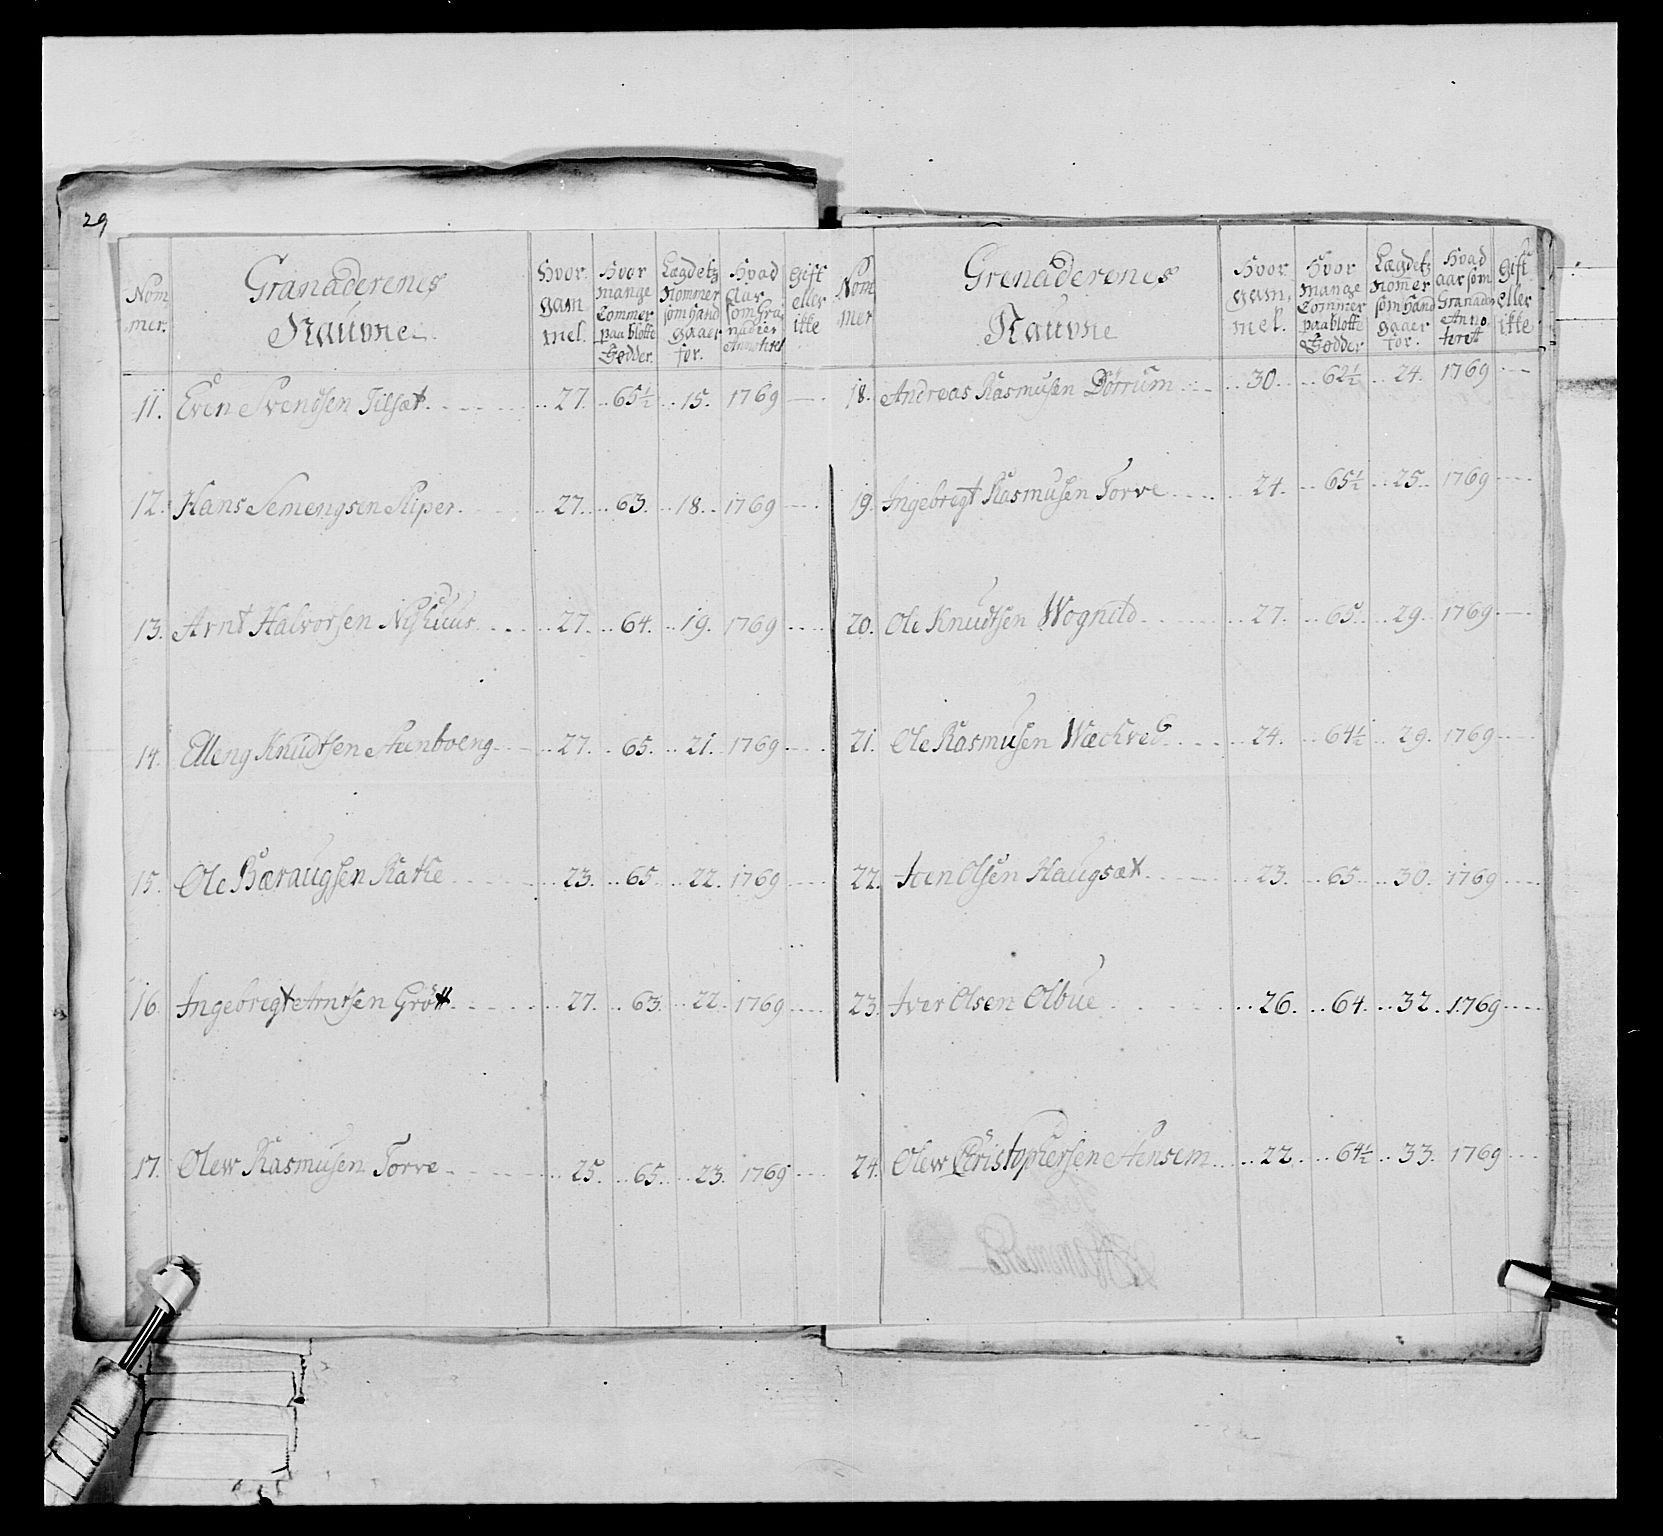 29
Nom
mer.
Granaderenes
Nauvne.
Hvor
gam
mel.
Hvor
mange
Tommer
paa blotte
Fødder.
Lægdetz
Nommer
som hand
gaaer
for.
Hvad
Aar
som Gra
nadier
Gift
eller
ikke
11. Even Svendsen Tilsæt 27. 65½ 15. 1769
12. Hans Semengsen Riper 27. 63. 18. 1769
13. Arnt Halvorsen 27. 64. 19. 1769
14. Elleng Knudtsen Steenboeng 27. 65. 21. 1769
15. Ole Bæraugsen Rathe 23. 65. 22. 1769
16. Ingebrigt Arntsen Grött 27. 63. 22. 1769
17. Olew Rasmusen Torve 25. 65. 23. 1769
Nom
mer
Grenaderenes
Nauvne
Hvor
gam
mel.
Hvor
mange
Tommer
paa blotte
Fødder
Lægdetz
Nomer
som hand
gaaer
for.
Hvad
aar som
Granadir
Anno
teret
Gift
eller
ikke
18. Andreas Rasmusen Dörrum 30. 62½ 24. 1769
19. Ingebrigt Rasmusen Torve 24. 65½ 25. 1769
20. Ole Knudtsen Wognild 27. 65. 29. 1769
21. Ole Rasmusen Wæckved 24. 64½ 29. 1769
22. Iten Olsen Haugsæt 23. 65. 30. 1769
23. Iver Olsen Olbue 26. 64. 32. 1769
24. Olew Christophersen Stensem 22. 64½ 33. 1769